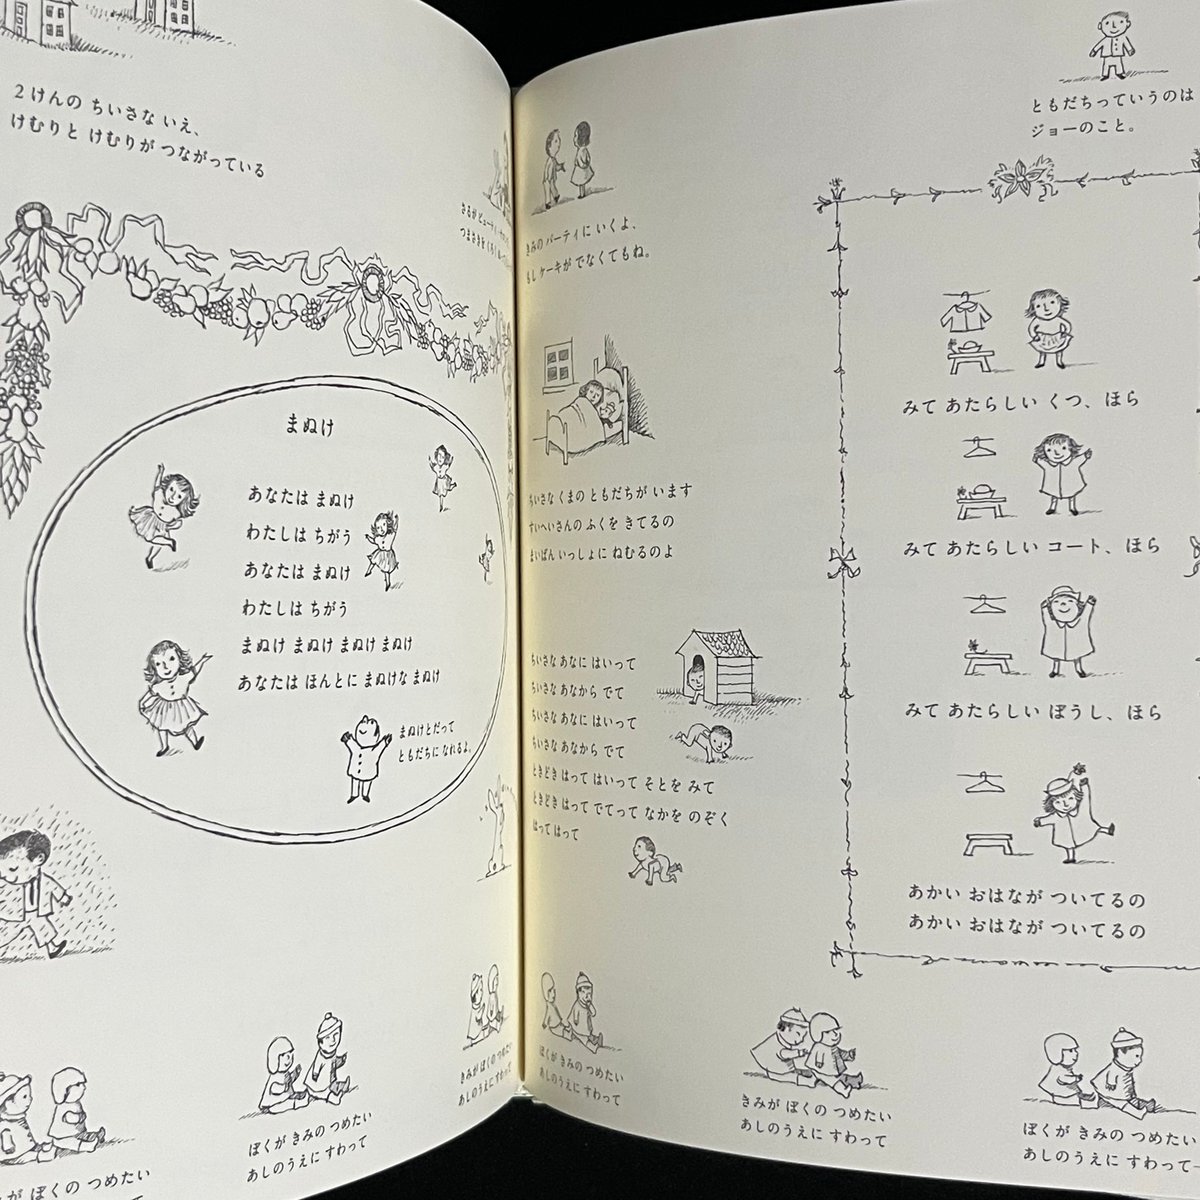 2けんの ちいさな いえ、
けむりと けむりが つながっている
さるが ビューティー
つまさきを くろく
まぬけ
あなたは まぬけ
わたしは ちがう
あなたは まぬけ
わたしは ちがう
まぬけ まぬけ まぬけ まぬけ
あなたは ほんとに まぬけな まぬけ
まぬけとだって
ともだちに なれるよ。
きみが ぼくの つめたい
ぼくが きみの つめたい
あしのうえに すわって
きみが ぼくの つめたい
あしのうえに すわって
きみの パーティに いくよ、
もし ケーキが でなくてもね。
ちいさな くまの ともだちが います
すいへいさんの ふくを きてるの
まいばん いっしょに ねむるのよ
ちいさな あなに はいって
ちいさな あなから でて
ちいさな あなに はいって
ちいさな あなから でて
ときどき はって はいって そとを みて
ときどき はって でてって なかを のぞく
はって はって
ともだちっていうのは
ジョーのこと。
みて あたらしい くつ、ほら
みて あたらしい コート、ほら
みて あたらしい ぼうし、ほら
あかい おはなが ついてるの
あかい おはなが ついてるの
ぼくが きみの つめたい
あしのうえに すわって
きみが ぼくの つめたい
あしのうえに すわって
ぼくが きみの つめたい
あしのうえに すわって